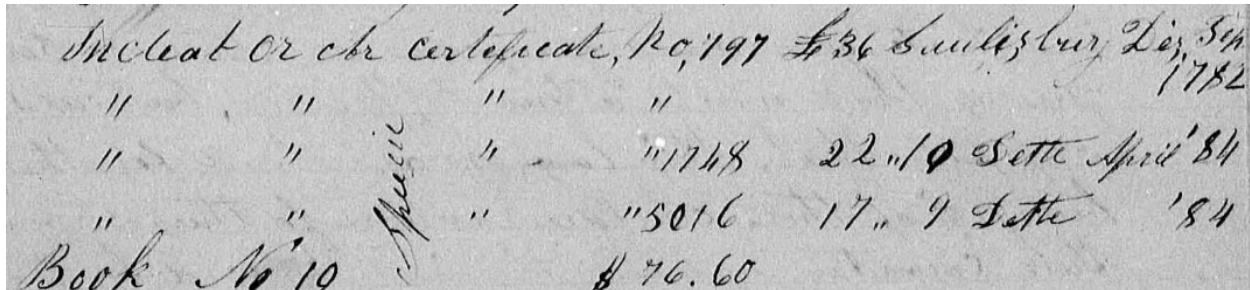 Indeat Or chr certificate, No, 797 £ 36 Saulisbury Dis, Sep
1782
" " " "
" " " " 1748 22 " 10 Dette April '84
" " Specie " " 5016 17 " 9 Dette '84
Book No 10 $ 76.60